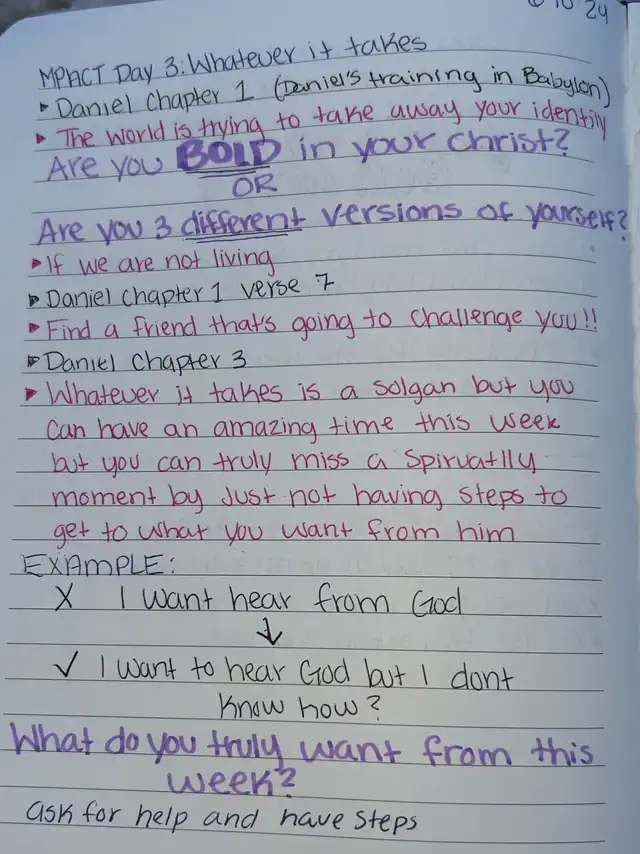 24
MPACT Day 3: Whatever it takes
▸ Daniel Chapter 1 (Daniel's training in Babylon)
▸ The world is trying to take away your identity
Are you BOLD in your Christ?
OR
Are you 3 different versions of yourself?
▸ If we are not living
▸ Daniel Chapter 1 verse 7
▸ Find a friend that's going to challenge you!!
▸ Daniel Chapter 3
▸ Whatever it takes is a solgan but you
can have an amazing time this week
but you can truly miss a spirvatlly
moment by just not having steps to
get to what you want from him
EXAMPLE:
X I want hear from God
↓
✓ I want to hear God but I dont
know how?
What do you truly want from this
week?
ask for help and have steps